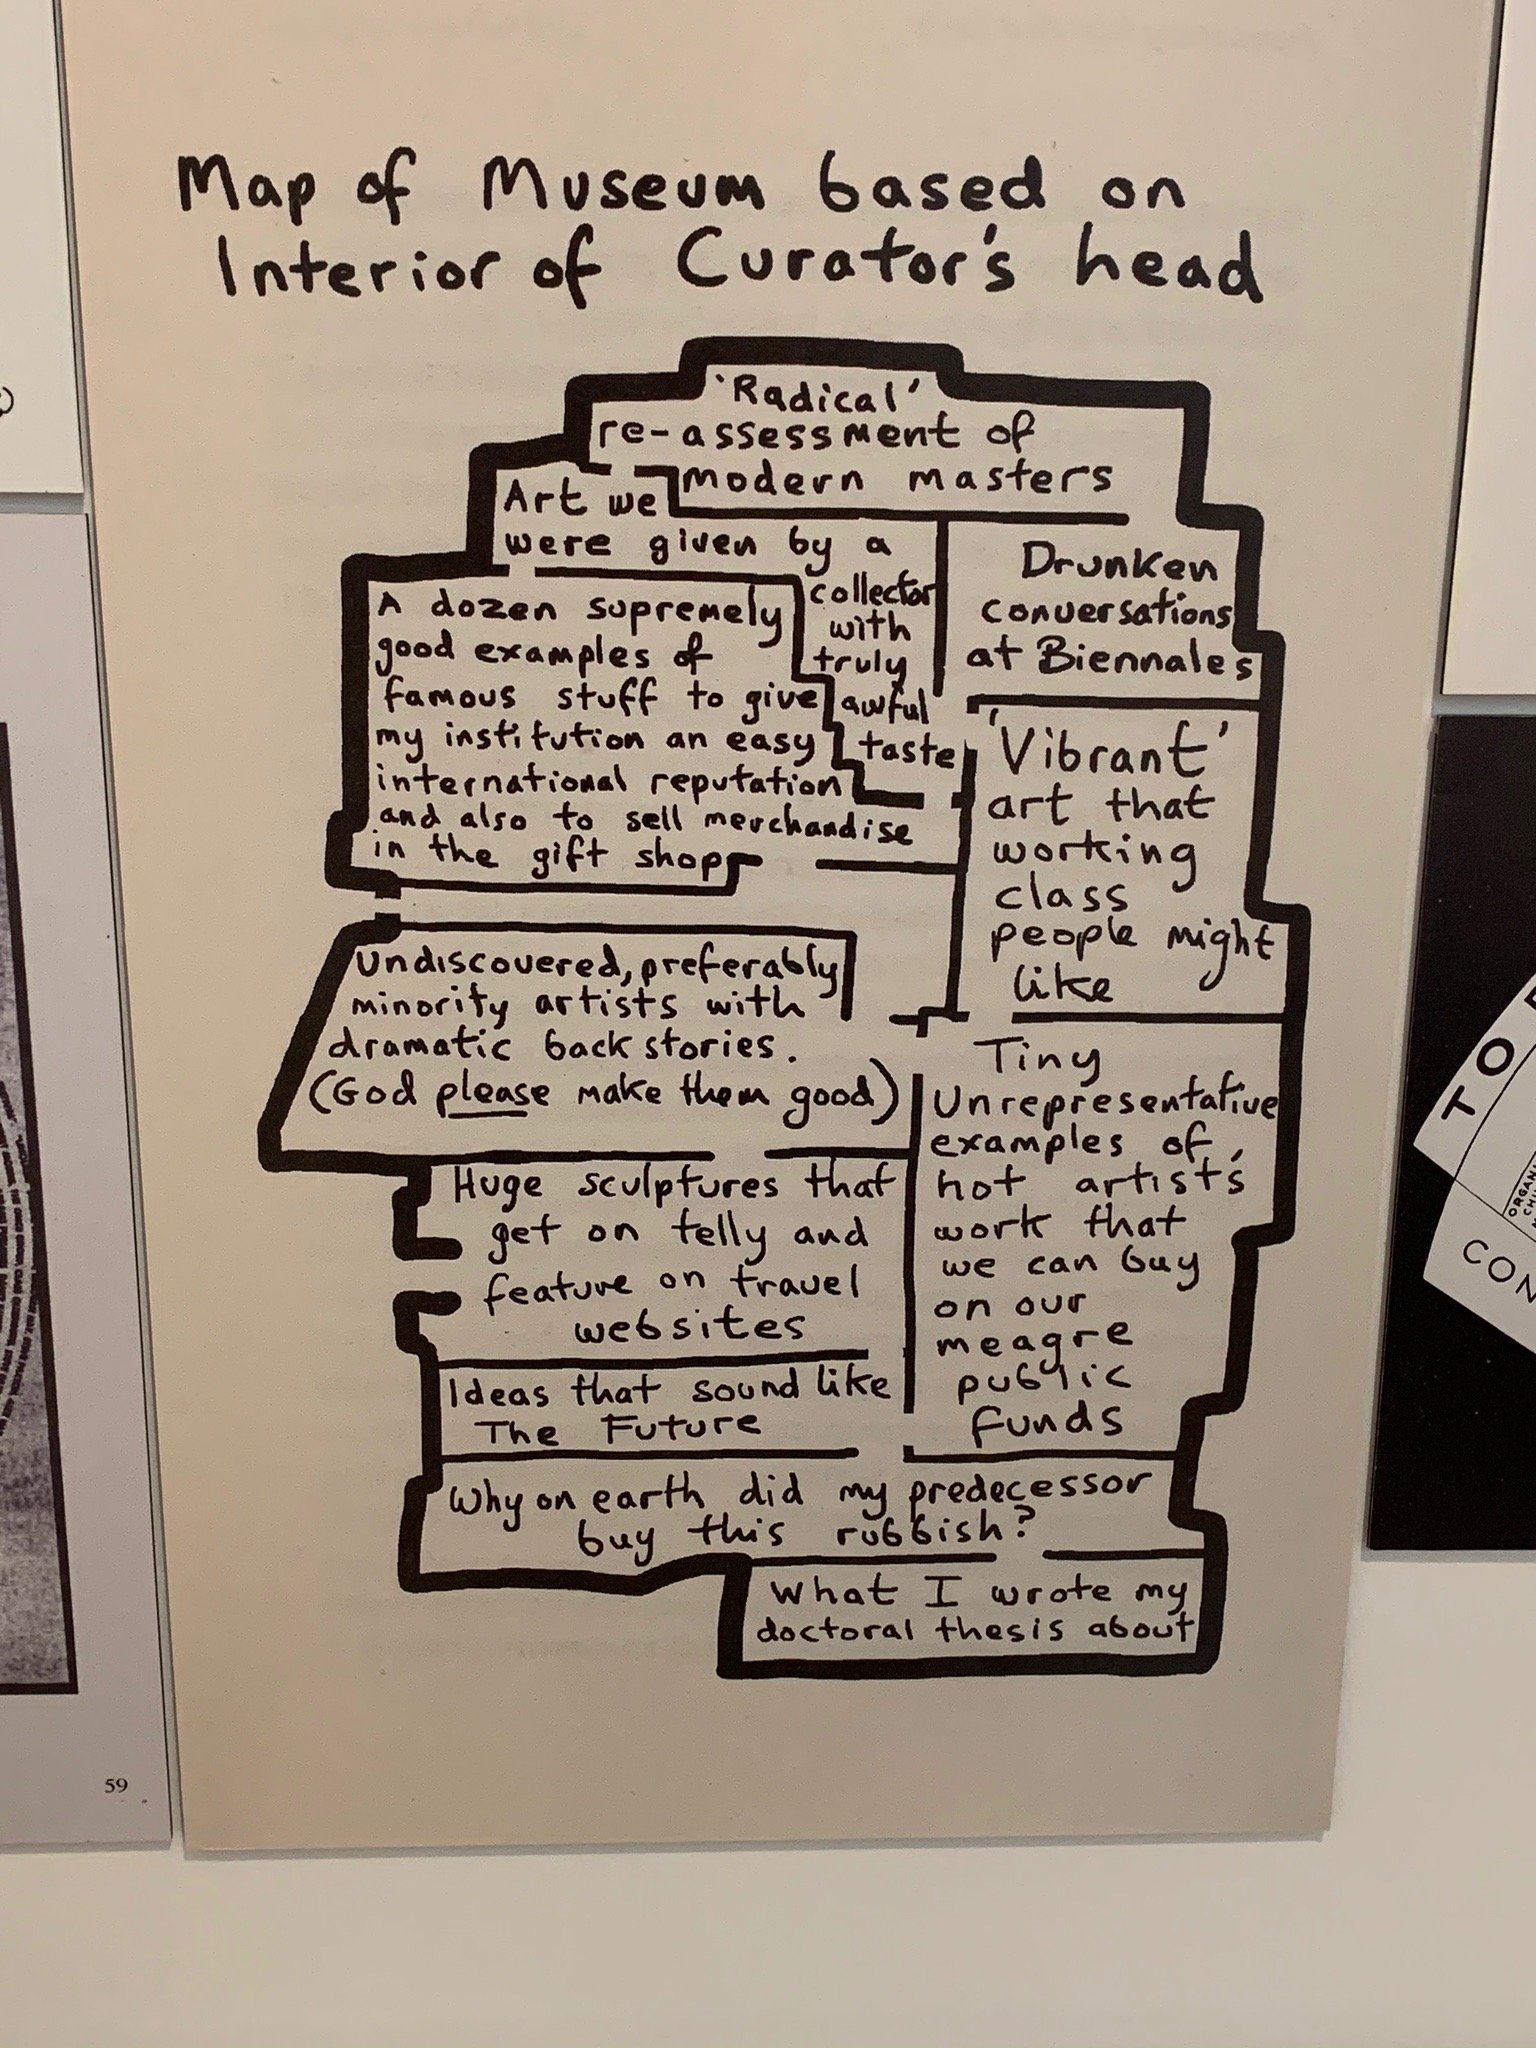 Map of Museum based on
Interior of Curator's head
'Radical'
re-assessment of
modern masters
Art we
were given by a
collector
with
truly
awful
taste
Drunken
conversations
at Biennales
A dozen supremely
good examples of
famous stuff to give
my institution an easy
international reputation
and also to sell merchandise
in the gift shop
'Vibrant'
art that
working
class
people might
like
Undiscovered, preferably
minority artists with
dramatic back stories.
(God please make them good)
Tiny
Unrepresentative
examples of
hot artist's
work that
we can buy
on our
meagre
public
funds
Huge sculptures that
get on telly and
feature on travel
websites
Ideas that sound like
The Future
Why on earth did my predecessor
buy this rubbish?
What I wrote my
doctoral thesis about
59
TO
CON